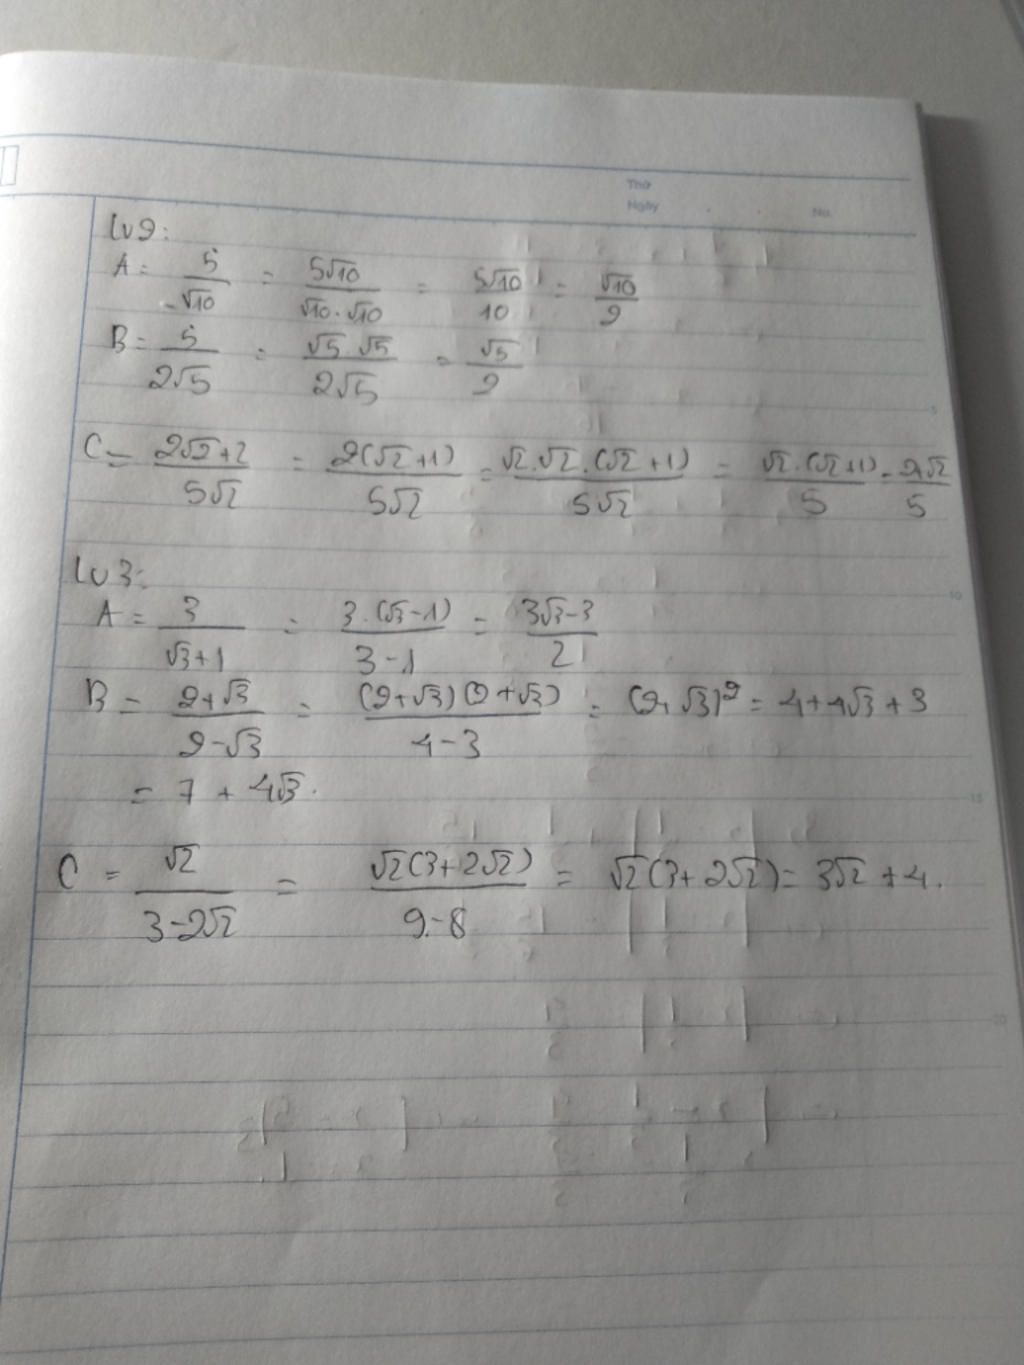 Thứ
Ngày No.
Lv2:
A = 5/√10 = 5√10/(√10·√10) = 5√10/10 = √10/2
B = 5/(2√5) = (√5 √5)/(2√5) = √5/2
C = (2√2+2)/(5√2) = 2(√2+1)/(5√2) = √2.√2.(√2+1)/(5√2) = √2.(√2+1)/5 = 2√2/5
Lv3:
A = 3/(√3+1) = 3.(√3-1)/(3-1) = (3√3-3)/2
B = (2+√3)/(2-√3) = (2+√3)(2+√3)/(4-3) = (2+√3)² = 4+4√3+3
= 7 + 4√3.
C = √2/(3-2√2) = √2(3+2√2)/(9-8) = √2(3+2√2) = 3√2+4.
5
10
15
20